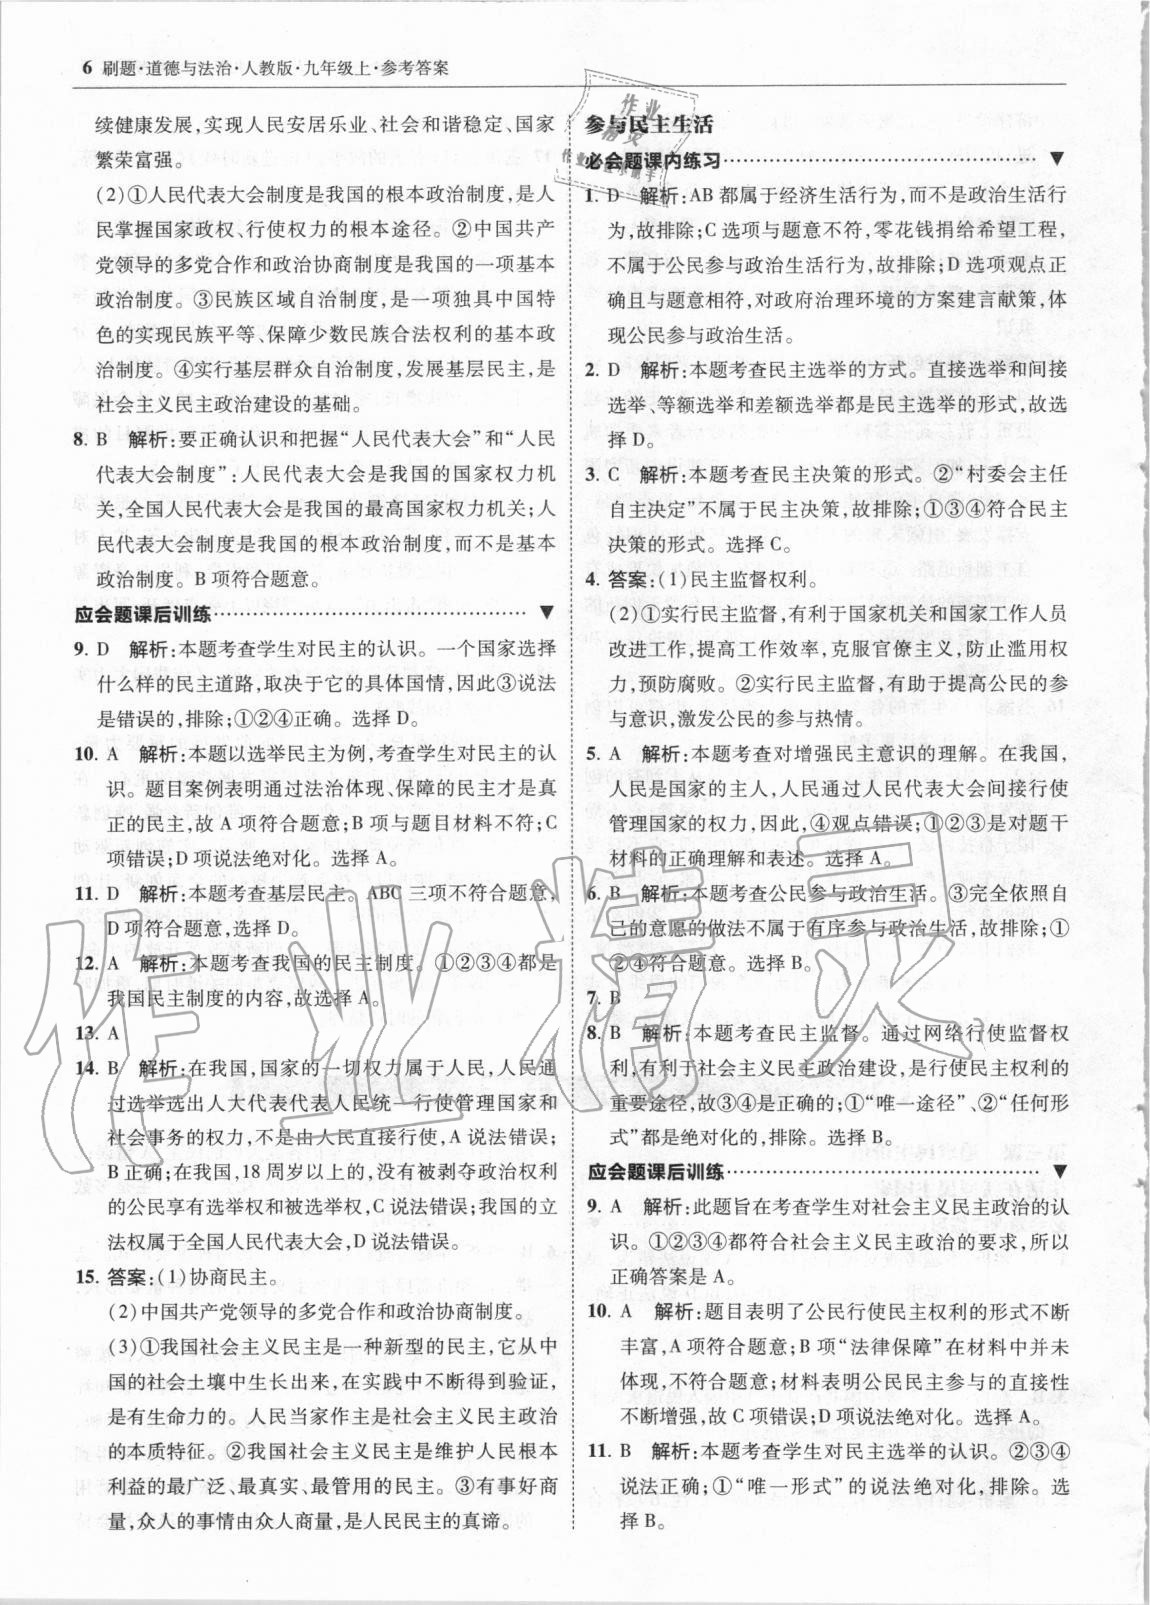 6 刷题·道德与法治·人教版·九年级上·参考答案
续健康发展,实现人民安居乐业、社会和谐稳定、国家
繁荣富强。
(2)①人民代表大会制度是我国的根本政治制度,是人
民掌握国家政权、行使权力的根本途径。②中国共产
党领导的多党合作和政治协商制度是我国的一项基本
政治制度。③民族区域自治制度,是一项独具中国特
色的实现民族平等、保障少数民族合法权利的基本政
治制度。④实行基层群众自治制度,发展基层民主,是
社会主义民主政治建设的基础。
8. B 解析:要正确认识和把握“人民代表大会”和“人民
代表大会制度”:人民代表大会是我国的国家权力机
关,全国人民代表大会是我国的最高国家权力机关;人
民代表大会制度是我国的根本政治制度,而不是基本
政治制度。B项符合题意。
应会题课后训练
9. D 解析:本题考查学生对民主的认识。一个国家选择
什么样的民主道路,取决于它的具体国情,因此③说法
是错误的,排除;①②④正确。选择 D。
10. A 解析:本题以选举民主为例,考查学生对民主的认
识。题目案例表明通过法治体现、保障的民主才是真
正的民主,故 A 项符合题意;B 项与题目材料不符;C
项错误;D 项说法绝对化。选择 A。
11. D 解析:本题考查基层民主。ABC 三项不符合题意,
D 项符合题意,选择 D。
12. A 解析:本题考查我国的民主制度。①②③④都是
我国民主制度的内容,故选择 A。
13. A
14. B 解析:在我国,国家的一切权力属于人民,人民通
过选举选出人大代表代表人民统一行使管理国家和
社会事务的权力,不是由人民直接行使,A 说法错误;
B 正确;在我国,18 周岁以上的,没有被剥夺政治权利
的公民享有选举权和被选举权,C 说法错误;我国的立
法权属于全国人民代表大会,D 说法错误。
15. 答案:(1)协商民主。
(2)中国共产党领导的多党合作和政治协商制度。
(3)①我国社会主义民主是一种新型的民主,它从中
国的社会土壤中生长出来,在实践中不断得到验证,
是有生命力的。人民当家作主是社会主义民主政治
的本质特征。②我国社会主义民主是维护人民根本
利益的最广泛、最真实、最管用的民主。③有事好商
量,众人的事情由众人商量,是人民民主的真谛。
参与民主生活
必会题课内练习
1. D 解析:AB 都属于经济生活行为,而不是政治生活行
为,故排除;C 选项与题意不符,零花钱捐给希望工程,
不属于公民参与政治生活行为,故排除;D 选项观点正
确且与题意相符,对政府治理环境的方案建言献策,体
现公民参与政治生活。
2. D 解析:本题考查民主选举的方式。直接选举和间接
选举、等额选举和差额选举都是民主选举的形式,故选
择 D。
3. C 解析:本题考查民主决策的形式。②“村委会主任
自主决定”不属于民主决策,故排除;①③④符合民主
决策的形式。选择 C。
4. 答案:(1)民主监督权利。
(2)①实行民主监督,有利于国家机关和国家工作人员
改进工作,提高工作效率,克服官僚主义,防止滥用权
力,预防腐败。②实行民主监督,有助于提高公民的参
与意识,激发公民的参与热情。
5. A 解析:本题考查对增强民主意识的理解。在我国,
人民是国家的主人,人民通过人民代表大会间接行使
管理国家的权力,因此,④观点错误;①②③是对题干
材料的正确理解和表述。选择 A。
6. B 解析:本题考查公民参与政治生活。③完全依照自
己的意愿的做法不属于有序参与政治生活,故排除;①
②④符合题意。选择 B。
7. B
8. B 解析:本题考查民主监督。通过网络行使监督权
利,有利于社会主义民主政治建设,是行使民主权利的
重要途径,故③④是正确的;①“唯一途径”、②“任何形
式”都是绝对化的,排除。选择 B。
应会题课后训练
9. A 解析:此题旨在考查学生对社会主义民主政治的认
识。①②③④都符合社会主义民主政治的要求,所以
正确答案是 A。
10. A 解析:题目表明了公民行使民主权利的形式不断
丰富,A 项符合题意;B 项“法律保障”在材料中并未
体现,不符合题意;材料表明公民民主参与的直接性
不断增强,故 C 项错误;D 项说法绝对化。选择 A。
11. B 解析:本题考查学生对民主选举的认识。②③④
说法正确;①“唯一形式”的说法绝对化,排除。选
择 B。
作业精灵